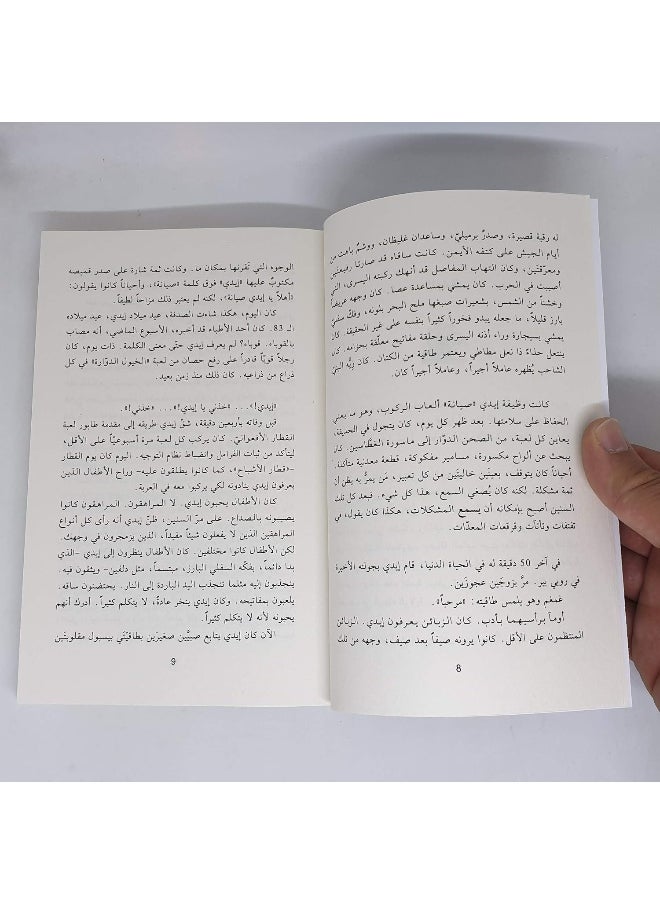 له رقبة قصيرة، وصدرٌ برميليّ، وساعدان غليظان، ووشمٌ باهت من
أيام الجيش على كتفه الأيمن. كانت ساقاه قد صارتا رفيعتين
ومعرّقتين، وكان التهاب المفاصل قد أنهك ركبته اليسرى، التي
أصيبت في الحرب. كان يمشي بمساعدة عصا. كان وجهه عريضاً
وخشناً من الشمس، بشعيرات صبغها ملح البحر بلونه، وفكّ سفلي
بارز قليلاً، ما جعله يبدو فخوراً كثيراً بنفسه على غير الحقيقة. كان
يمشي بسيجارة وراء أذنه اليسرى وحلقة مفاتيح معلّقة بحزامه. كان
ينتعل حذاءً ذا نعل مطاطي ويعتمر طاقية من الكتان. كان زيّه البنّي
الشاحب يُظهره عاملاً أجيراً، وعاملاً أجيراً كان.
كانت وظيفة إيدي «صيانة» ألعاب الركوب، وهو ما يعني
الحفاظ على سلامتها. بعد ظهر كل يوم، كان يتجول في الحديقة،
يعاين كل لعبة، من الصحن الدوّار إلى ماسورة الغطّاسين. كان
يبحث عن ألواح مكسورة، مسامير مفكوكة، قطعة معدنية متآكلة.
أحياناً كان يتوقف، بعينَين خاليتَين من كل تعبير، مَن يمرُّ به يظن أن
ثمة مشكلة. لكنه كان يُصغي السمع، هذا كل شيء. فبعد كل تلك
السنين أصبح بإمكانه أن يسمع المشكلات، هكذا كان يقول، في
تفتفات وتأتآت وفرقعات المعدّات.
في آخر 50 دقيقة له في الحياة الدنيا، قام إيدي بجولته الأخيرة
في روبي بير. مرَّ بزوجَين عجوزَين.
غمغم وهو يلمس طاقيته: «مرحباً».
أومأ برأسيهما بأدب. كان الزبائن يعرفون إيدي. الزبائن
المنتظمون على الأقل. كانوا يرونه صيفاً بعد صيف، وجهه من تلك
8
الوجوه التي تَقرنها بمكان ما. وكانت ثمة شارة على صدر قميصه
مكتوبٌ عليها «إيدي» فوق كلمة «صيانة»، وأحياناً كانوا يقولون:
«أهلاً يا إيدي صيانة»، لكنه لم يعتبر ذلك مزاحاً لطيفاً.
كان اليوم، هكذا شاءت الصدفة، عيد ميلاد إيدي، عيد ميلاده
الـ 83. كان أحد الأطباء قد أخبره، الأسبوع الماضي، أنه مصاب
بالقوباء. قوباء؟ لم يعرف إيدي حتّى معنى الكلمة. ذات يوم، كان
رجلاً قويّاً قادراً على رفع حصان من لعبة «الخيول الدوّارة» في كل
ذراع من ذراعيه. كان ذلك منذ زمن بعيد.
«إيدي!»... «خذني يا إيدي!»... «خذني!».
قبل وفاته بأربعين دقيقة، شقَّ إيدي طريقه إلى مقدمة طابور لعبة
القطار الأفعوانيّ. كان يركب كل لعبة مرة أسبوعيّاً على الأقل،
ليتأكد من ثبات الفرامل وانضباط نظام التوجيه. اليوم كان يوم القطار
-«قطار الأشباح»، كما كانوا يطلقون عليه- وراح الأطفال الذين
يعرفون إيدي ينادونه لكي يركبوا معه في العربة.
كان الأطفال يحبون إيدي. لا المراهقون. المراهقون كانوا
يصيبونه بالصداع. على مرّ السنين، ظنّ إيدي أنه رأى كل أنواع
المراهقين الذين لا يفعلون شيئاً مفيداً، الذين يزمجرون في وجهك.
لكن الأطفال كانوا مختلفين. كان الأطفال ينظرون إلى إيدي -الذي
بدا دائماً، بفكّه السفلي البارز، مبتسماً، مثل دلفين- ويثقون فيه.
ينجذبون إليه مثلما تنجذب اليد الباردة إلى النار. يحتضنون ساقه.
يلعبون بمفاتيحه. وكان إيدي ينخر عادةً، لا يتكلم كثيراً. أدرك أنهم
يحبونه لأنه لا يتكلم كثيراً.
الآن كان إيدي يتابع صبيَّين صغيرَين بطاقيّتَي بيسبول مقلوبتَين
9